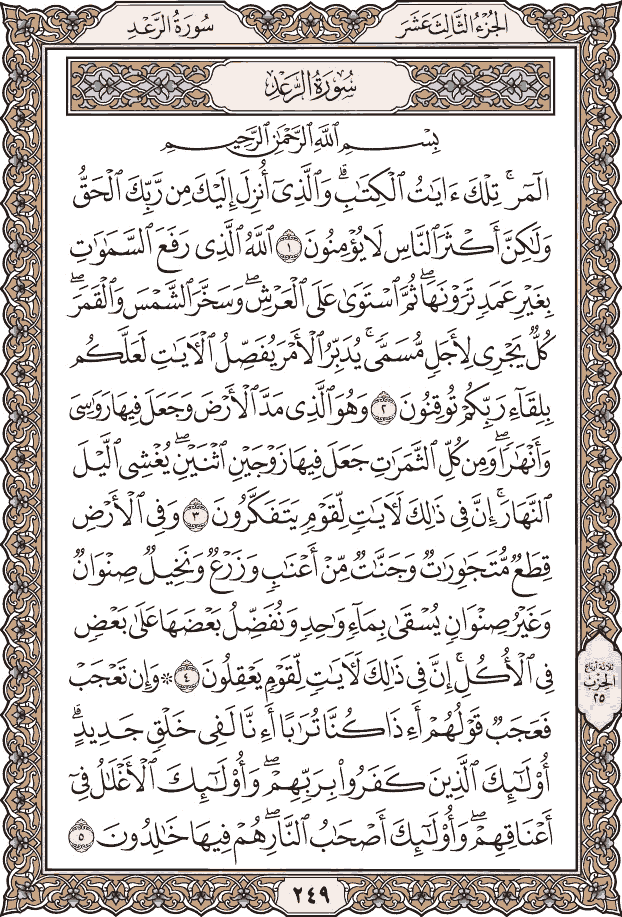 سُورَةُ الرَّعْدِ
الجُزْءُ الثَّالِثَ عَشَرَ
سُورَةُ الرَّعْدِ
بِسْمِ ٱللَّهِ ٱلرَّحْمَٰنِ ٱلرَّحِيمِ
الٓمٓرۚ تِلْكَ ءَايَٰتُ ٱلْكِتَٰبِۗ وَٱلَّذِىٓ أُنزِلَ إِلَيْكَ مِن رَّبِّكَ ٱلْحَقُّ
وَلَٰكِنَّ أَكْثَرَ ٱلنَّاسِ لَا يُؤْمِنُونَ ١ ٱللَّهُ ٱلَّذِى رَفَعَ ٱلسَّمَٰوَٰتِ
بِغَيْرِ عَمَدٍ تَرَوْنَهَاۖ ثُمَّ ٱسْتَوَىٰ عَلَى ٱلْعَرْشِۖ وَسَخَّرَ ٱلشَّمْسَ وَٱلْقَمَرَۖ
كُلٌّ يَجْرِى لِأَجَلٍ مُّسَمًّىۚ يُدَبِّرُ ٱلْأَمْرَ يُفَصِّلُ ٱلْءَايَٰتِ لَعَلَّكُم
بِلِقَآءِ رَبِّكُمْ تُوقِنُونَ ٢ وَهُوَ ٱلَّذِى مَدَّ ٱلْأَرْضَ وَجَعَلَ فِيهَا رَوَٰسِىَ
وَأَنْهَٰرًاۖ وَمِن كُلِّ ٱلثَّمَرَٰتِ جَعَلَ فِيهَا زَوْجَيْنِ ٱثْنَيْنِۖ يُغْشِى ٱلَّيْلَ
ٱلنَّهَارَۚ إِنَّ فِى ذَٰلِكَ لَءَايَٰتٍ لِّقَوْمٍ يَتَفَكَّرُونَ ٣ وَفِى ٱلْأَرْضِ
قِطَعٌ مُّتَجَٰوِرَٰتٌ وَجَنَّٰتٌ مِّنْ أَعْنَٰبٍ وَزَرْعٌ وَنَخِيلٌ صِنْوَانٌ
وَغَيْرُ صِنْوَانٍ يُسْقَىٰ بِمَآءٍ وَٰحِدٍ وَنُفَضِّلُ بَعْضَهَا عَلَىٰ بَعْضٍ
فِى ٱلْأُكُلِۚ إِنَّ فِى ذَٰلِكَ لَءَايَٰتٍ لِّقَوْمٍ يَعْقِلُونَ ٤ ۞ وَإِن تَعْجَبْ
ثلاثة أرباع
الحزب
٢٥
فَعَجَبٌ قَوْلُهُمْ أَءِذَا كُنَّا تُرَٰبًا أَءِنَّا لَفِى خَلْقٍ جَدِيدٍۗ
أُو۟لَٰٓئِكَ ٱلَّذِينَ كَفَرُوا۟ بِرَبِّهِمْۖ وَأُو۟لَٰٓئِكَ ٱلْأَغْلَٰلُ فِىٓ
أَعْنَاقِهِمْۖ وَأُو۟لَٰٓئِكَ أَصْحَٰبُ ٱلنَّارِۖ هُمْ فِيهَا خَٰلِدُونَ ٥
٢٤٩